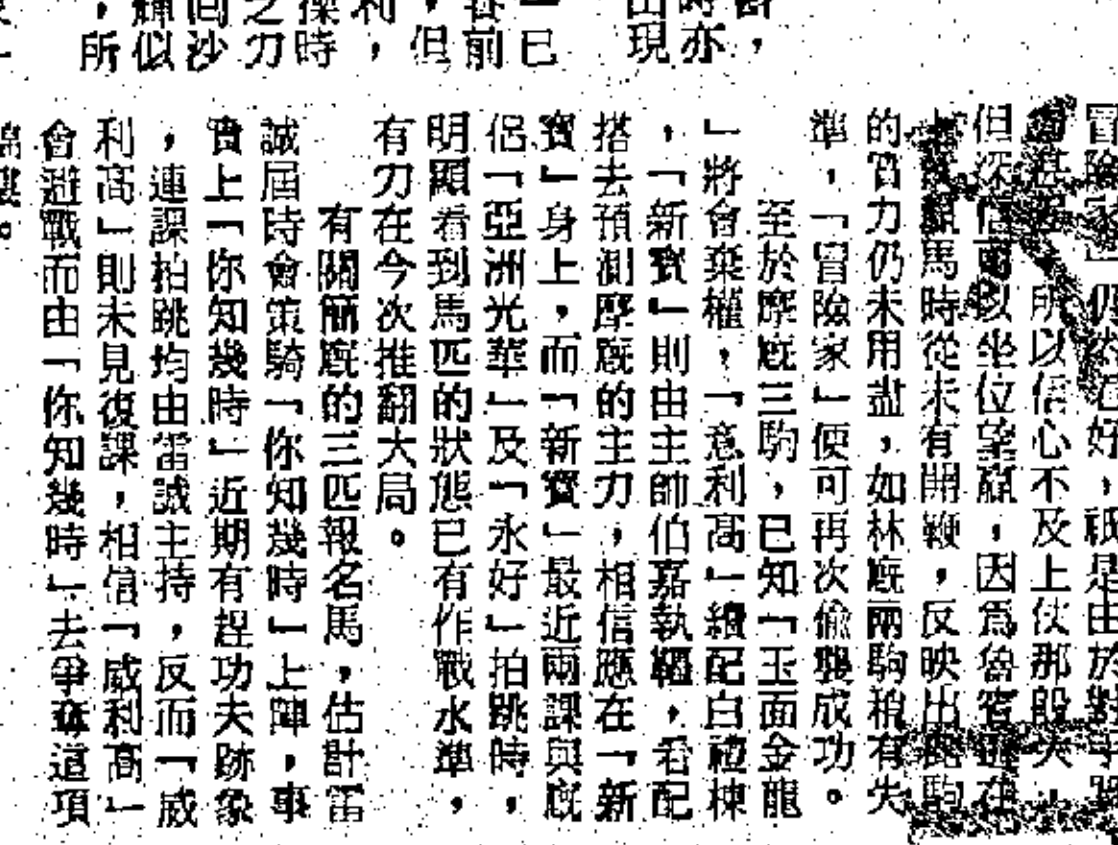 時亦，
現
已
前
，但
利，
操時
之刀
間沙
似
，所
冒險家」仍然好，祇是由於對手
所以信心不及上仗那般大，
但深信可以坐位望贏，因爲魯賓遜在
贏馬時從未有開鞭，反映出此駒
的實力仍未用盡，如林廐兩駒稍有失
準，「冒險家」便可再次偷襲成功。
至於摩廐三駒，已知「玉面金龍
」將會棄權，「意利高」續配白禮棟
，「新寶」則由主帥伯嘉執韁，看配
搭去預測摩廐的主力，相信應在「新
寶」身上，而「新寶」最近兩課與廐
侶「亞洲光華」及「永好」拍跳時，
明顯看到馬匹的狀態已有作戰水準，
有力在今次推翻大局。
有關簡廐的三匹報名馬，估計雷
誠屆時會策騎「你知幾時」上陣，事
實上「你知幾時」近期有趕功夫跡象
，連課拍跳均由雷誠主持，反而「威
利高」則未見復課，相信「威利高」
會避戰而由「你知幾時」去爭奪這項
錦標。